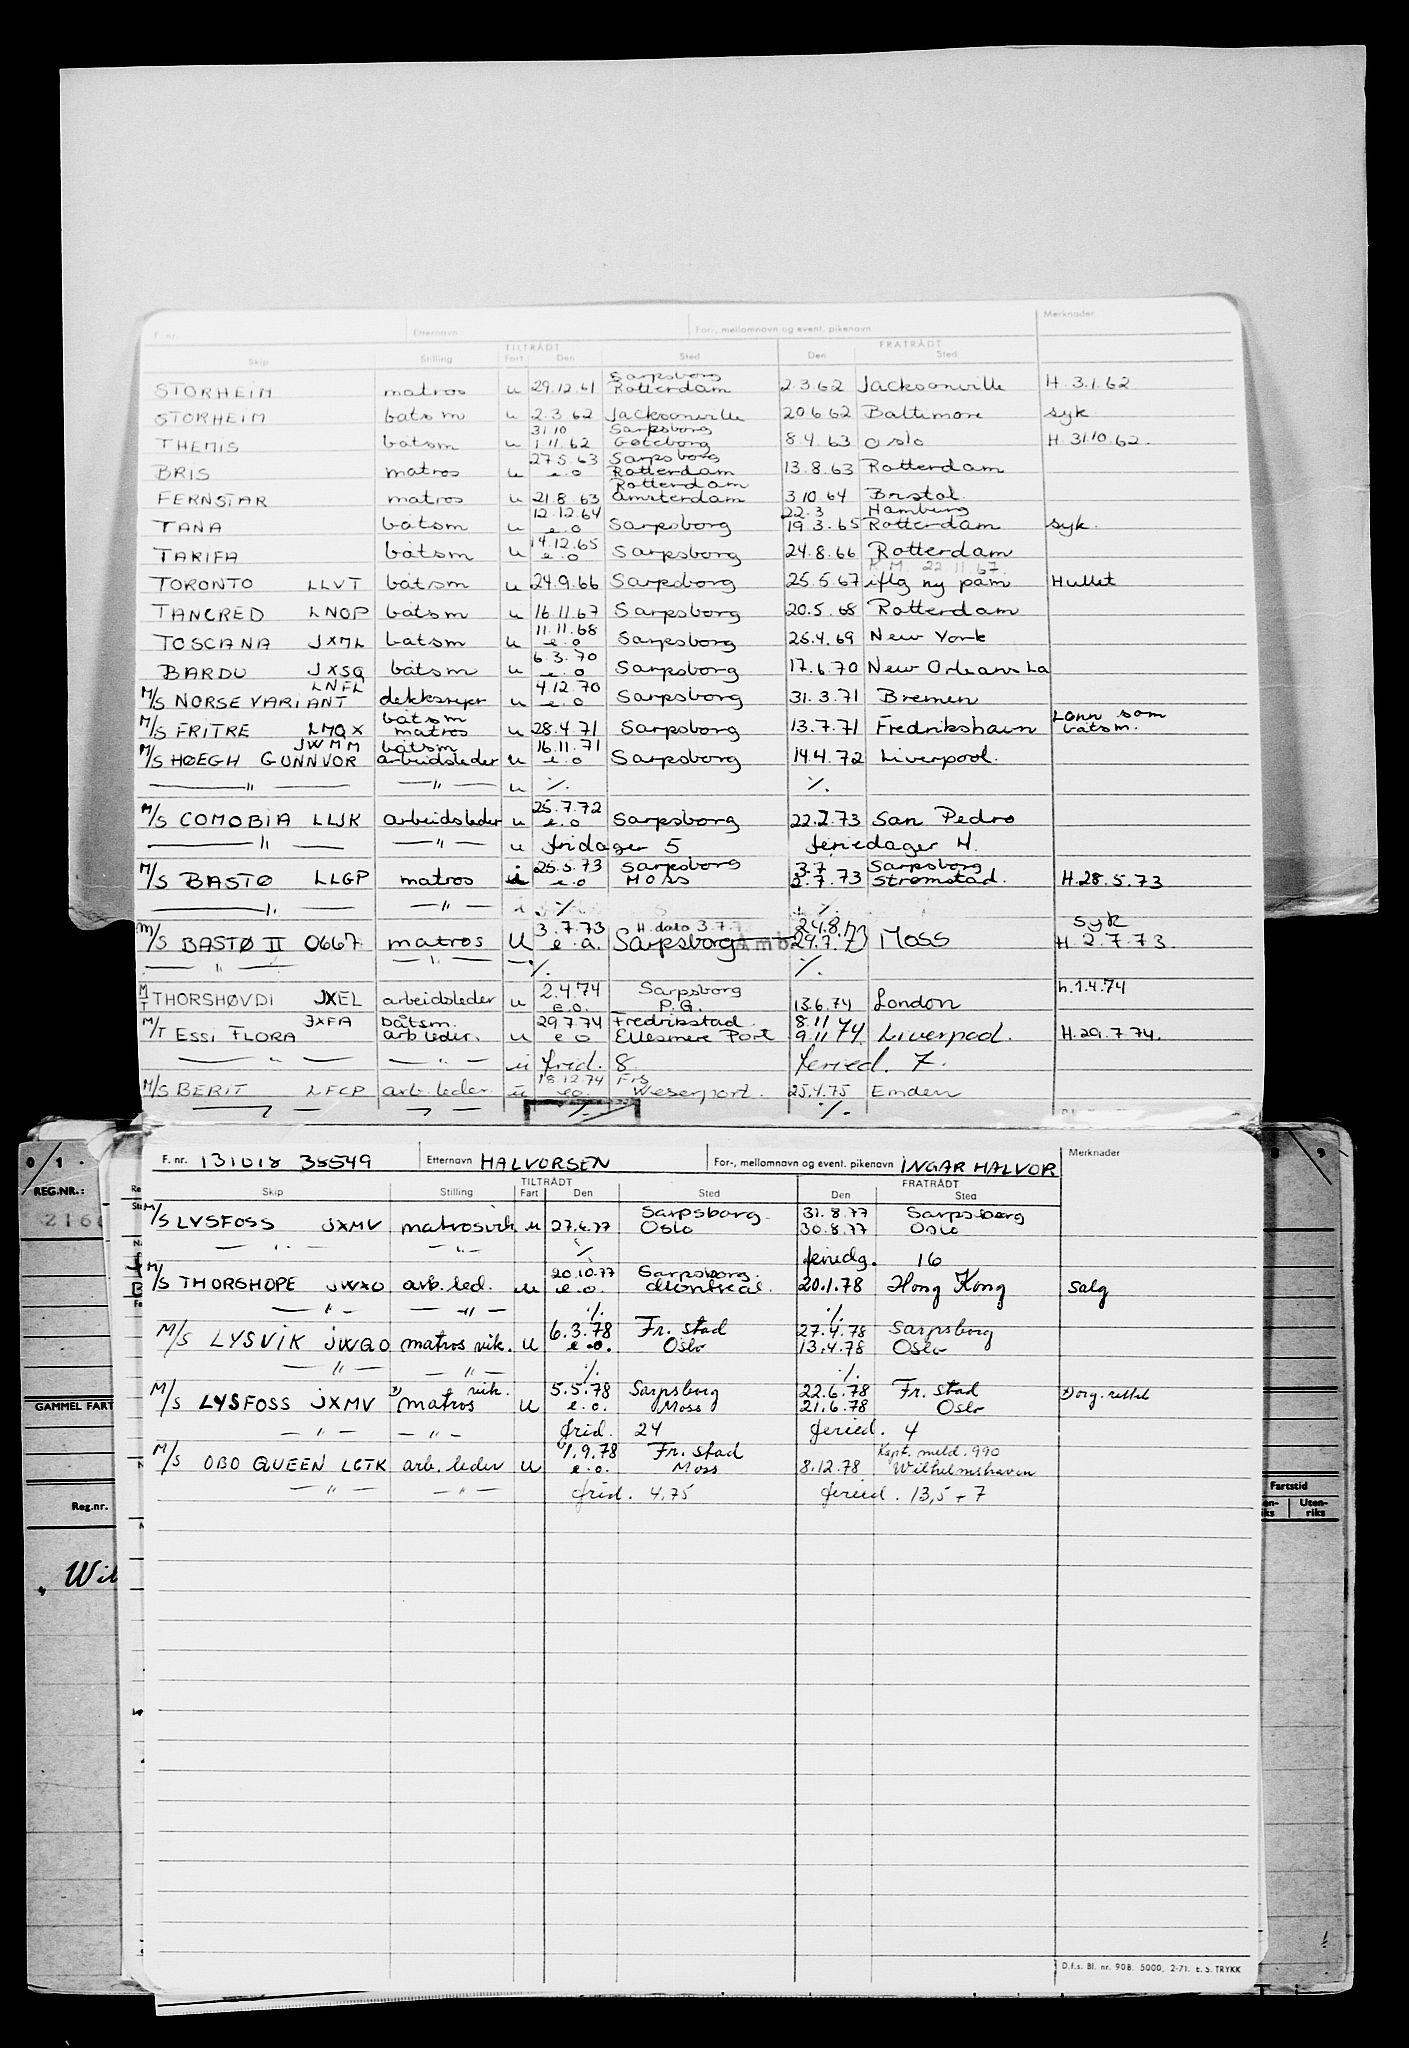 F. nr. Etternavn For-, mellomnavn og event. pikenavn Merknader
TILTRÅDT FRATRÅDT
Skip Stilling Fart Den Sted Den Sted
Sarpsborg
STORHEIM matros u 29.12.61 Rotterdam 2.3.62 Jacksonville H. 3.1.62
STORHEIM båtsm u 2.3.62 Jacksonville 20.6.62 Baltimore syk
31.10 Sarpsborg
THEMIS båtsm u 1.11.62 Gøteborg 8.4.63 Oslo H. 31.10.62.
27.5.63 Sarpsborg
BRIS matros u e.o Rotterdam 13.8.63 Rotterdam
Rotterdam
FERNSTAR matros u 21.8.63 Amsterdam 3.10.64 Bristol
12.12.64 22.3 Hamburg
TANA båtsm u e.o Sarpsborg 19.3.65 Rotterdam syk.
14.12.65
TARIFA båtsm u e.o Sarpsborg 24.8.66 Rotterdam
R.M. 22.11.67.
TORONTO LLVT båtsm u 24.9.66 Sarpsborg 25.5.67 iflg ny påm Hullet
TANCRED LNOP båtsm u 16.11.67 Sarpsborg 20.5.68 Rotterdam
11.11.68
TOSCANA JXML båtsm u e.o Sarpsborg 25.4.69 New York
6.3.70
BARDU JXSQ båtsm u e.o Sarpsborg 17.6.70 New Orleans La
LNFL 4.12.70
M/S NORSE VARIANT u e.o Sarpsborg 31.3.71 Bremen
båtsm Lønn som
M/S FRITRE LMQX matros u 28.4.71 Sarpsborg 13.7.71 Fredrikshavn båtsm.
JWMM båtsm 16.11.71
M/S HØEGH GUNNVOR arbeidsleder u e.o Sarpsborg 14.4.72 Liverpool.
— " — — " — u ./. ./.
25.7.72
M/S COMOBIA LLJK arbeidsleder u e.o Sarpsborg 22.2.73 San Pedro
— " — — " — u fridager 5 feriedager 4.
25.5.73 Sarpsborg 3.7 Sarpsborg
M/S BASTØ LLGP matros i e.o Moss 2.7.73 Strømstad. H.28.5.73
— " — — " — i ./. ./.
3.7.73 H. dato 3.7.7 24.8. syk
M/S BASTØ II 0667 matros U e.o. Sarpsborg 29.7. Moss H 2.7.73.
— " — — " — — ./. ./.
2.4.74 Sarpsborg h.1.4.74
M/T THORSHØVDI JXEL arbeidsleder u e.o. P.G. 13.6.74 London
JXFA båtsm. 29.7.74 Fredrikstad 8.11
M/T ESSI FLORA arb leder. u e o Ellesmere Port 9.11 74 Liverpool. H.29.7.74.
— " — — " — u frid. 8 feried. 7.
18.12.74 Frs
M/S BERIT LFCP arb. leder u eo Weserport. 25.4.75 Emden
— " — — " — ./. ./.
F. nr. 131018 35549 Etternavn HALVORSEN For-, mellomnavn og event. pikenavn INGAR HALVOR Merknader
TILTRÅDT FRATRÅDT
Skip Stilling Fart Den Sted Den Sted
Sarpsborg. 31.8.77 Sarpsborg
M/S LYSFOSS JXMV matrosvik u 27.6.77 Oslo 30.8.77 Oslo
— " — — " — ./. feriedg. 16
20.10.77 Sarpsborg.
M/S THORSHOPE JWXO arb. led. u e.o. Montreal. 20.1.78 Hong Kong Salg
— " — — " — ./. ./.
6.3.78 Fr. stad 27.4.78 Sarpsborg
M/S LYSVIK JWGO matros vik. u e.o. Oslo 13.4.78 Oslo
— " — — " — ./. ./.
vik. 5.5.78 Sarpsborg 22.6.78 Fr. stad
M/S LYSFOSS JXMV matros u e.o. Moss 21.6.78 Oslo
— " — — " — frid. 24 feried. 4
1.9.78 Fr. stad Kapt. meld. 990
M/S OBO QUEEN LGTK arb. leder u e.o. Moss 8.12.78 Wilhelmshaven
— " — — " — frid. 4,75 feried. 13,5 + 7
REG.NR.:
GAMMEL FART
Reg.nr.
Fartstid
Uten-
riks
D.f.s. Bl. nr. 908. 5000, 2-71. E.S. TRYKK